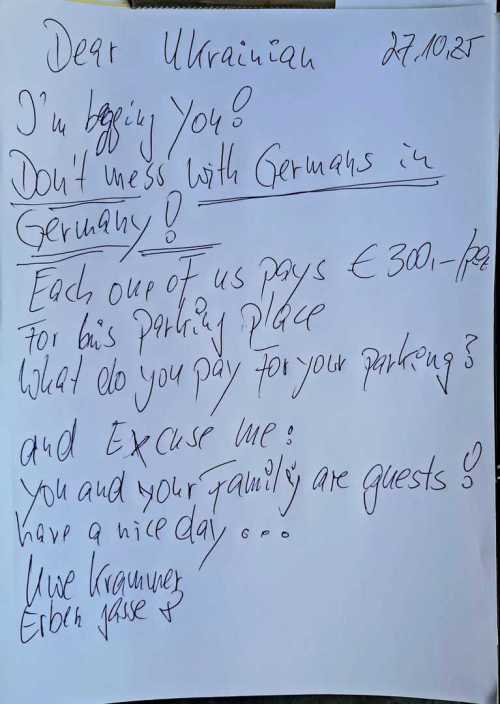 Dear Ukrainian 27.10.25
I'm begging You!
Don't mess with Germans in
Germany!
Each one of us pays € 300,-
For his parking place
What do you pay For your parking?
and Excuse me:
You and your Family are guests!
have a nice day...
Uwe Krammer
Erben gasse 8